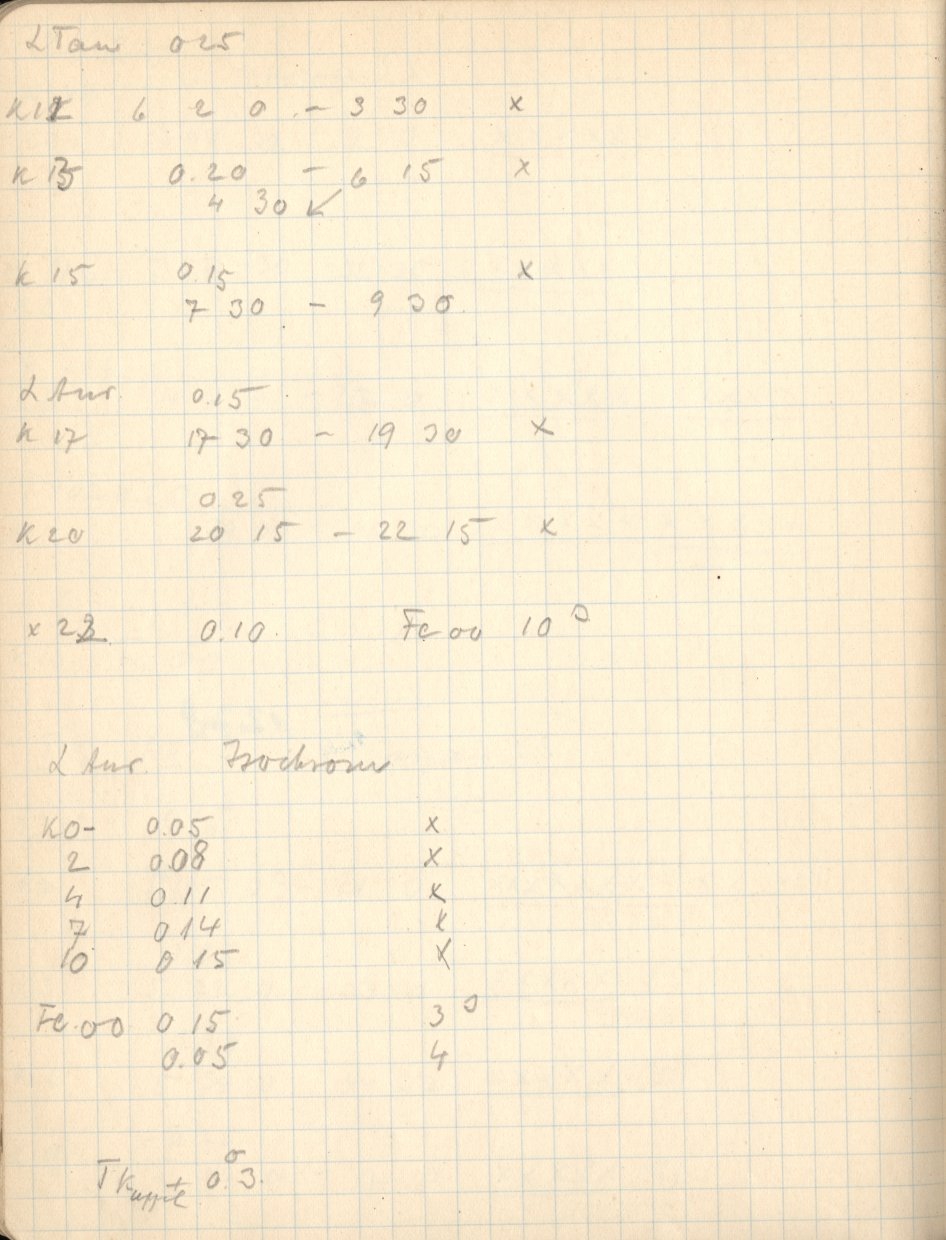 α Tau 0 25
K 12 6 2 0 - 3 30 x
K 13 0.20 - 6 15 x
4 30 ↙
K 15 0.15 x
7 30 - 9 30
α Aur. 0.15
K 17 17 30 - 19 30 x
0.25
K 20 20 15 - 22 15 x
x 22 0.10 Fe 00 10°
α Aur. Isochrom
K 0- 0.05 x
2 0.08 x
4 0.11 x
7 0 14 x
10 0 15 x
Fe. 00 0 15 3°
0.05 4
T Kuppel + 0.°3